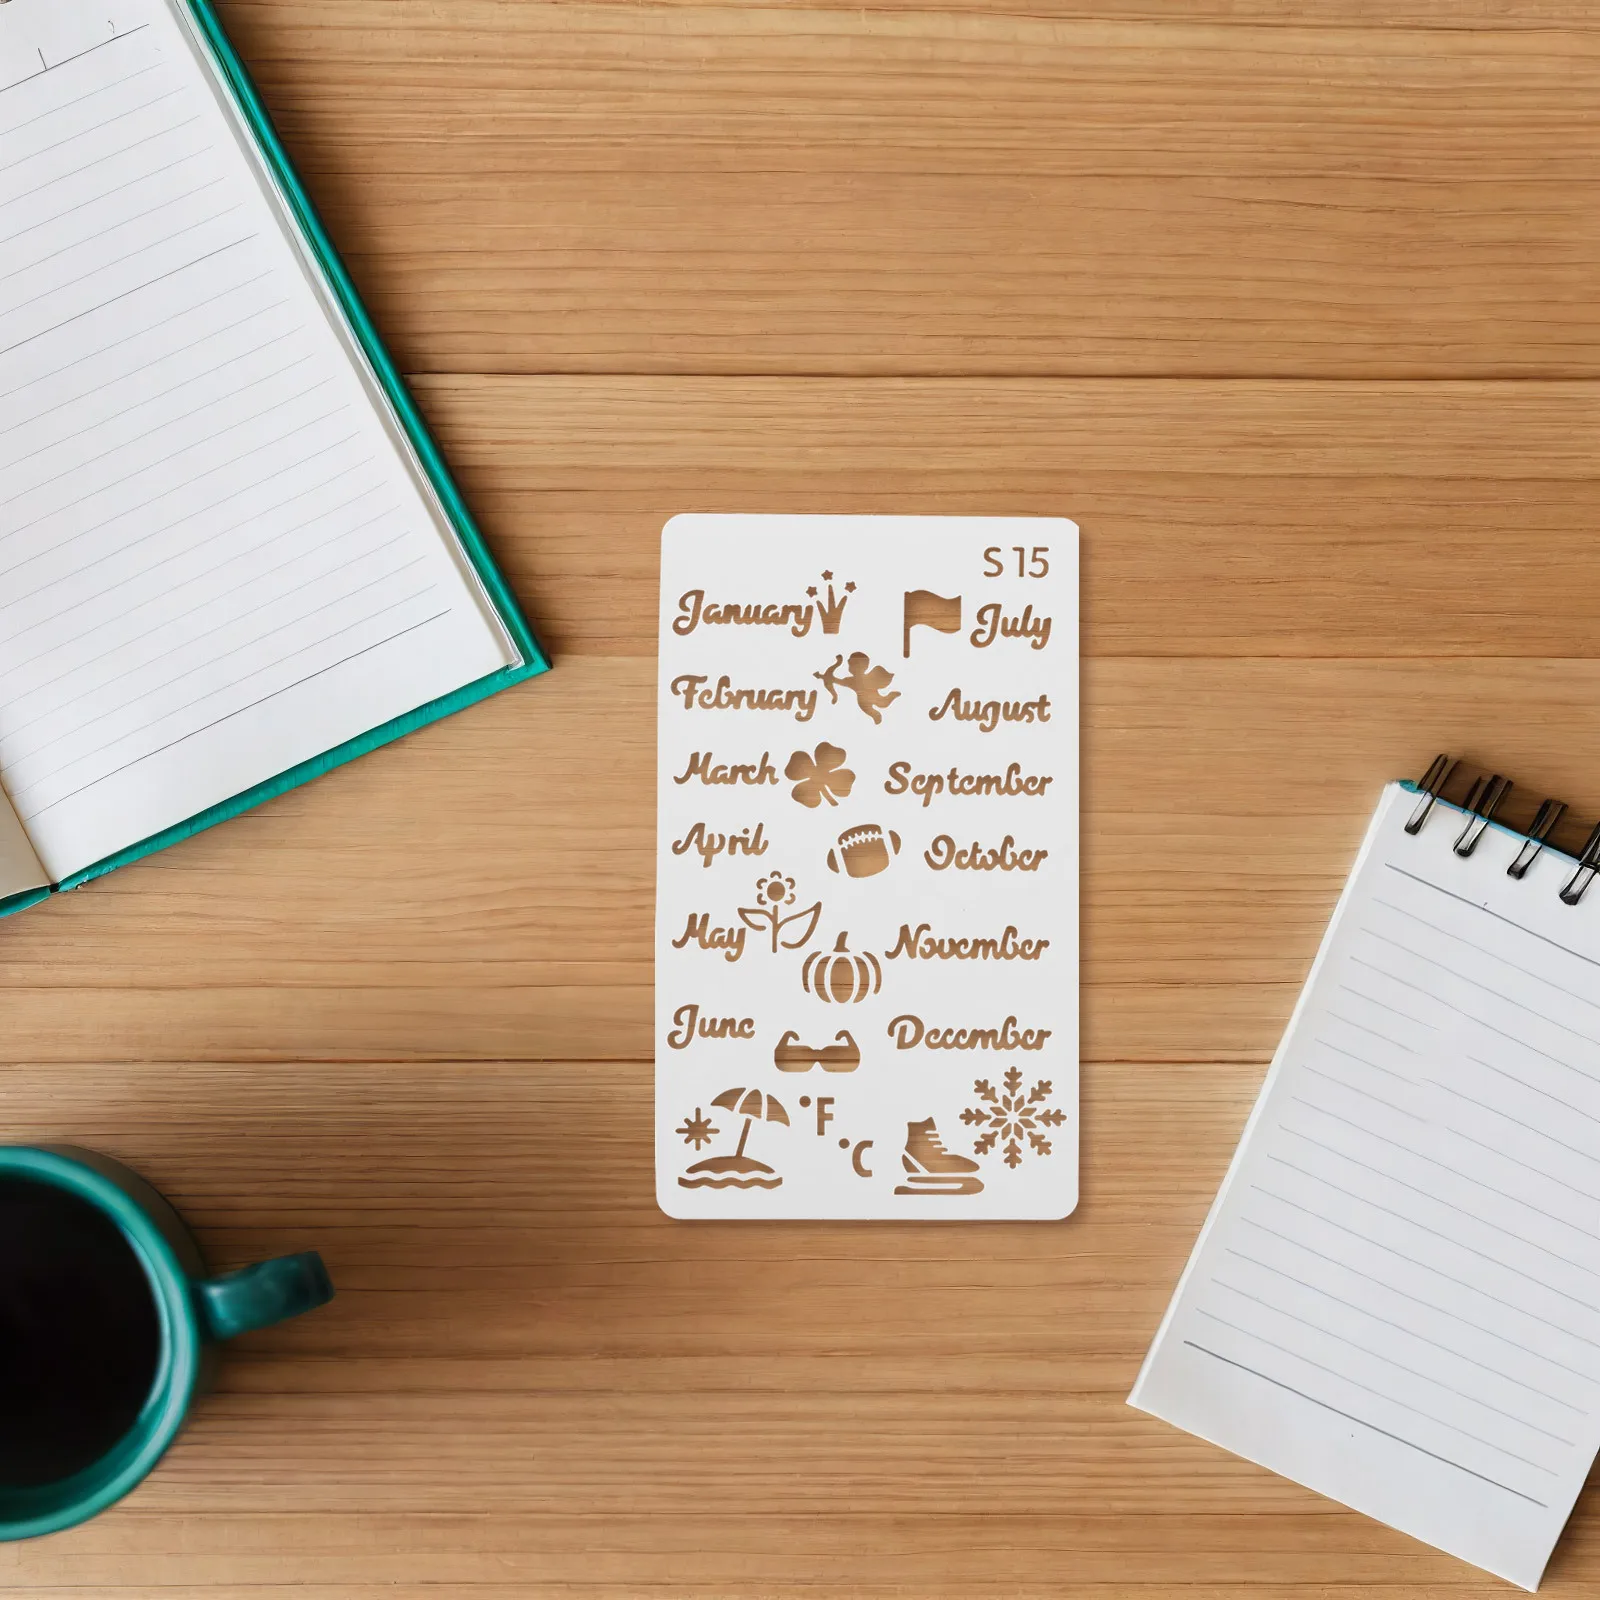 S 15
January
July
February
August
March
September
April
October
May
November
June
December
°F
°C